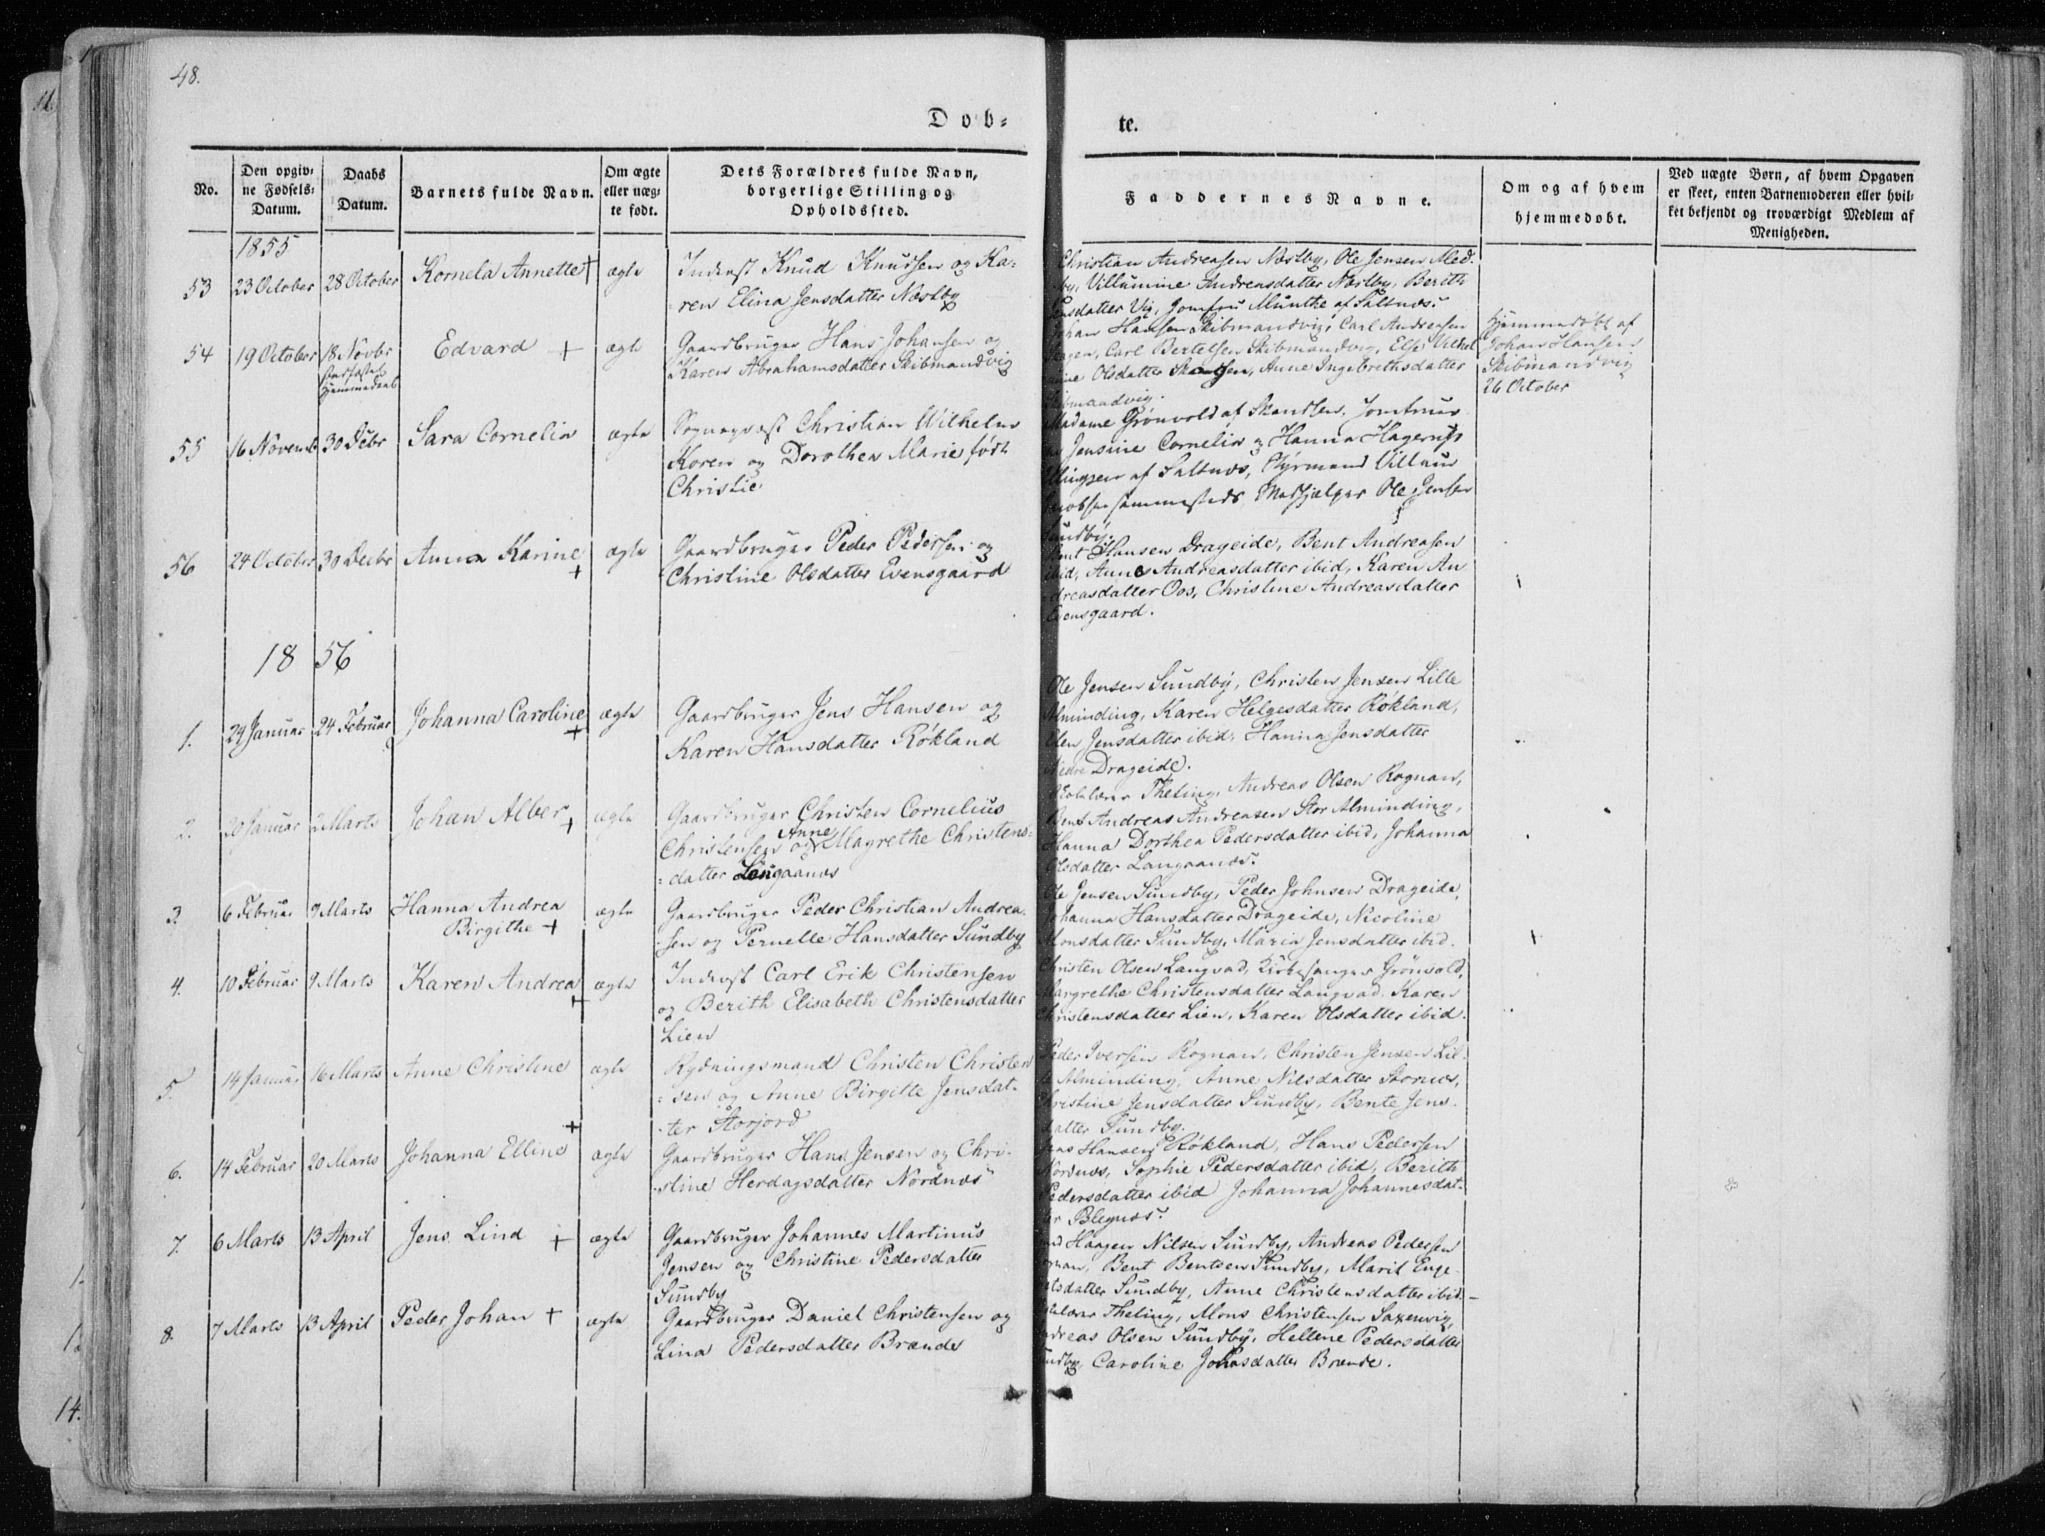 48.
Döb=
te.
No.
Den opgiv-
ne Fødsels-
Datum.
Daabs
Datum.
Barnets fulde Navn.
Om ægte
eller uæg-
te født.
Dets Forældres fulde Navn,
borgerlige Stilling og
Opholdssted.
Faddernes Navne.
Om og af hvem
hjemmedøbt.
Ved uægte Børn, af hvem Opgaven
er skeet, enten Barnemoderen eller hvil-
ket bekjendt og troværdigt Medlem af
Menigheden.
1855
53 23 October 28 October Kornela Annette + ægte
Inderst Knud Knudsen og Ka-
-ren Elina Jensdatter Næstby
Christian Andreasen Næstby, Ole Jensen Med
by, Villumine Andreasdatter Næstby, Berith
Jensdatter Vig, Jomfru Munthe af Saltnæs.
54 19 October 18 Novbr Edvard + ægte
Gaardbruger Hans Johansen og
Karen Abrahamsdatter Skibmandvig
Johan Hansen Skibmandvig, Carl Andreasen
Carl Bertelsen Skibmandvig, Else
Olsdatter Anne Ingebrethsdatter
Skibmandvig.
Hjemmedøbt af
Johan Hansen
Skibmandvig
26 October
55 16 Novemb 30 Debr Sara Cornelia ægte
Sognepræst Christian Wilhelm
Koren og Dorothea Marie født
Christie
Madame Grönvold af Skandsen, Jomfruer
Jensine Cornelia og Hanna Hagerup
Ellingsen af Saltnæs, Styrmand Villum
Jacobsen sammesteds Medhjælper Ole Jensen
Sundby.
56 24 October 30 Decbr Anna Karine + ægte
Gaardbruger Peder Pedersen og
Christine Olsdatter Evensgaard
Bent Hansen Drageide, Bent Andreasen
ibid, Anne Andreasdatter ibid, Karen An
dreasdatter Oos, Christine Andreasdatter
Evensgaard.
1856
1. 29 Januar 24 Februar Johanna Caroline + ægte
Gaardbruger Jens Hansen og
Karen Hansdatter Røkland
Ole Jensen Sundby, Christen Jensen Lille
Alminding, Karen Helgesdatter Røkland,
Elen Jensdatter ibid, Hanna Jensdatter
Nedre Drageide.
2. 20 Januar 2 Marts Johan Alber + ægte
Gaardbruger Christen Cornelius
Christensen og Anne Magrethe Christens=
=datter Langaanæs
Theling, Andreas Olsen Rognan,
Bent Andreas Andreasen Stor Alminding,
Hanna Dorthea Pedersdatter ibid, Johanna
Olsdatter Langaanæs.
3. 6 Februar 9 Marts Hanna Andrea
Birgithe + ægte
Gaardbruger Peder Christian Andrea-
-sen og Pernelle Hansdatter Sundby
Ole Jensen Sundby, Peder Johnsen Drageide,
Johanna Hansdatter Drageide, Nicoline
Monsdatter Sundby, Maria Jensdatter ibid.
4. 10 Februar 9 Marts Karen Andrea + ægte
Inderst Carl Erik Christensen
og Berith Elisabeth Christensdatter
Lien
Christen Olsen Langvad, Kirkesanger Grönvold,
Margrethe Christensdatter Langvad, Karen
Christensdatter Lien, Karen Olsdatter ibid.
5. 14 Januar 16 Marts Anne Christine + ægte
Rydningsmand Christen Christen
=sen og Anne Birgitte Jensdat-
-ter Storjord
Peder Iversen Rognan, Christen Jensen Lil-
le Alminding, Anne Nilsdatter Stornæs,
Christine Jensdatter Sundby, Bente Jens-
datter Sundby.
6. 14 Februar 20 Marts Johanna Elline ægte
Gaardbruger Hans Jensen og Chri-
-stine Herdagsdatter Nordnæs
Jens Hansen Røkland, Hans Pedersen
Nordnæs, Sophie Pedersdatter ibid, Berith
Pedersdatter ibid Johanna Johannesdat-
ter
7. 6 Marts 13 April Jens Lind + ægte
Gaardbruger Johannes Martinus
Jensen og Christine Pedersdatter
Sundby
Haagen Nilsen Sundby, Andreas Pedersen
Rognan, Bent Bentsen Sundby, Marit Enge-
Sundby, Anne Christensdatter ibid.
8. 7 Marts 13 April Peder Johan + ægte
Gaardbruger Daniel Christensen og
Lina Pedersdatter Brænde
Theling, Mons Christensen Saxenvig,
Andreas Olsen Sundby, Hellene Pedersdatter
Sundby, Caroline Johnsdatter Brænde.
14.